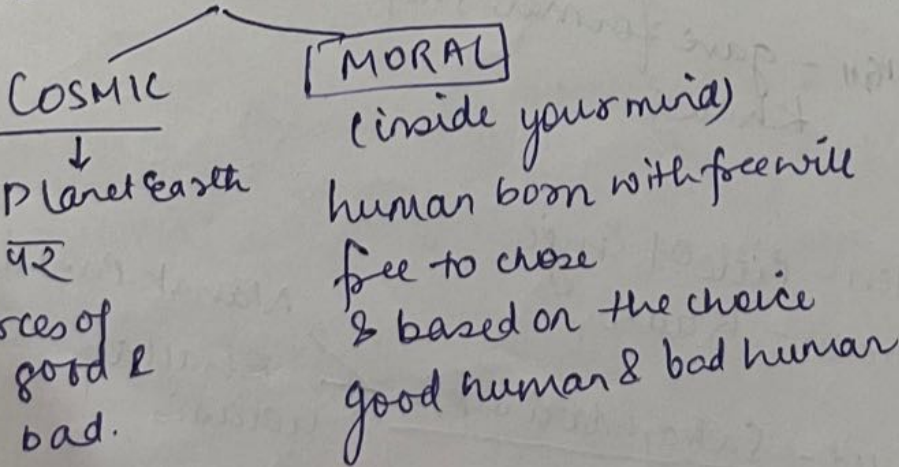 COSMIC
Planet Earth
पर
rces of
good &
bad.
MORAL
(inside your mind)
human born with free will
free to chose
& based on the choice
good human & bad human